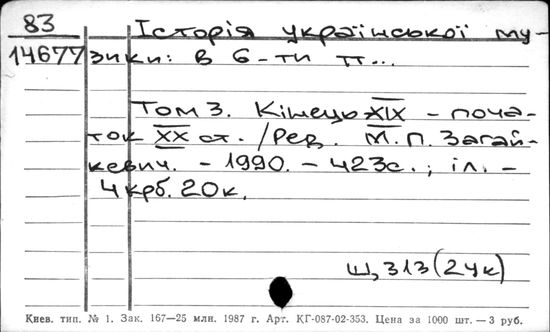 83
14677
Історія української му-
зики: в 6-ти тт...
Том 3. Кінець XIX – поча-
ток XX ст. / Ред. М.П. Загай-
кевич. – 1990. – 423с.; іл. –
4крб. 20к.
Щ,313(2Ук)
Киев. тип. № 1. Зак. 167—25 млн. 1987 г. Арт. КГ-087-02-353. Цена за 1000 шт. — 3 руб.